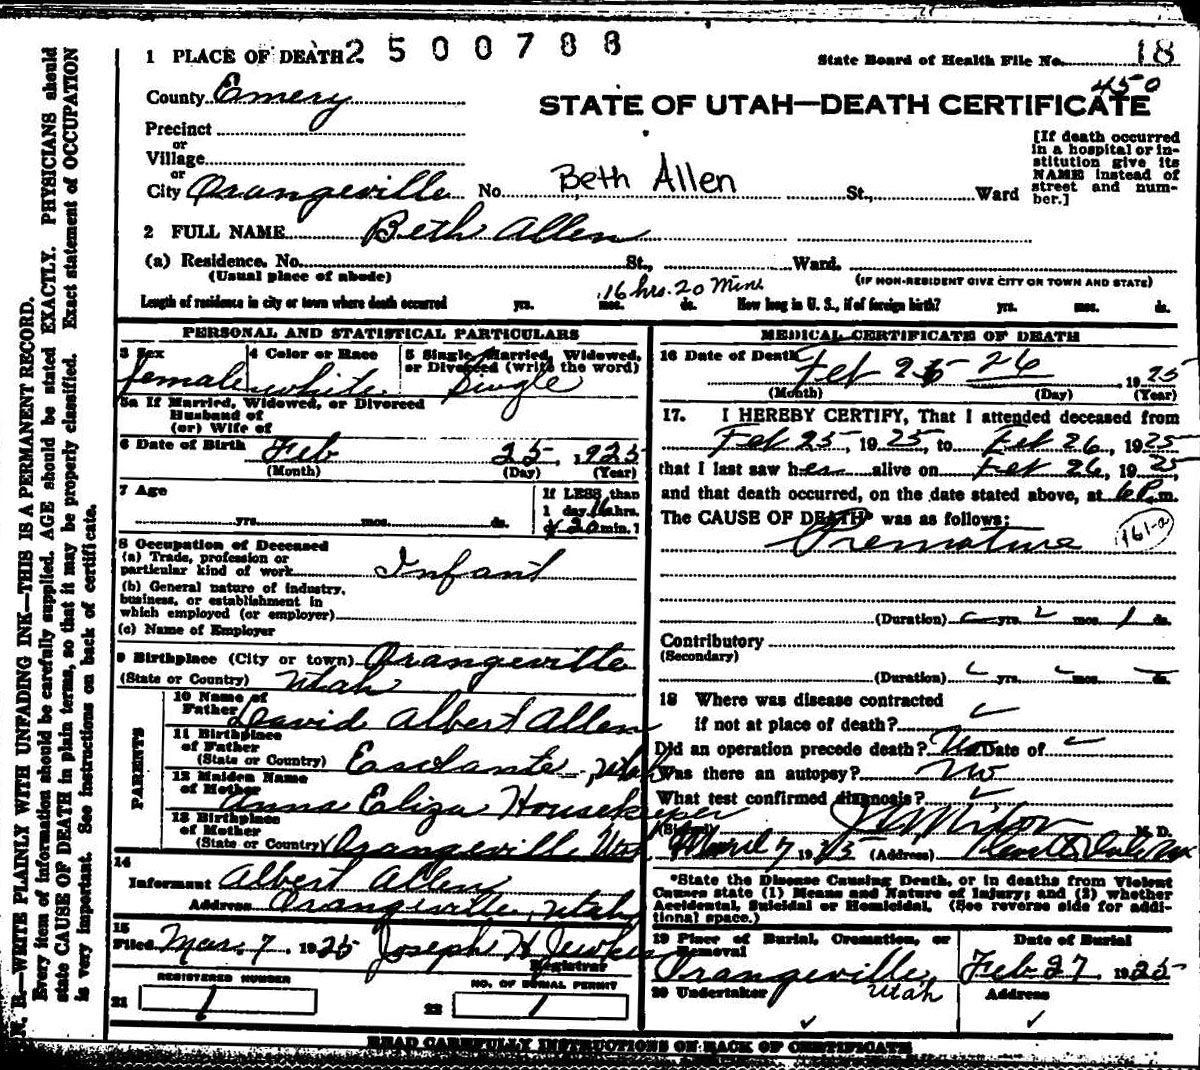 1 PLACE OF DEATH 2500788
State Board of Health File No. 18
450
County Emery
STATE OF UTAH—DEATH CERTIFICATE
Precinct
or
Village
or
City Orangeville No. Beth Allen St., Ward
[If death occurred in a hospital or in-
stitution give its
NAME instead of
street and num-
ber.]
2 FULL NAME Beth Allen
(a) Residence. No. St., Ward.
(Usual place of abode) (IF NON-RESIDENT GIVE CITY OR TOWN AND STATE)
16 hrs. 20 Mins
Length of residence in city or town where death occurred yrs. mos. ds. How long in U. S., if of foreign birth? yrs. mos. ds.
PERSONAL AND STATISTICAL PARTICULARS
3 Sex 4 Color or Race 5 Single, Married, Widowed,
or Divorced (write the word)
female white Single
5a If Married, Widowed, or Divorced
Husband of
(or) Wife of
6 Date of Birth Feb 25, 1925
(Month) (Day) (Year)
7 Age If LESS than
1 day 16 hrs.
yrs. mos. ds. or 20 min.?
8 Occupation of Deceased
(a) Trade, profession or
particular kind of work Infant
(b) General nature of industry,
business, or establishment in
which employed (or employer)
(c) Name of Employer
9 Birthplace (City or town) Orangeville
(State or Country) Utah
PARENTS
10 Name of
Father David Albert Allen
11 Birthplace
of Father
(State or Country) Escalante, Utah
12 Maiden Name
of Mother Anna Eliza Housekeeper
13 Birthplace
of Mother
(State or Country) Orangeville Utah
14
Informant Albert Allen
Address Orangeville, Utah
15
Filed Mar. 7 1925 Joseph H Jewkes
Registrar
REGISTERED NUMBER NO. OF BURIAL PERMIT
21 1 22 1
MEDICAL CERTIFICATE OF DEATH
16 Date of Death Feb 26 1925
(Month) (Day) (Year)
17. I HEREBY CERTIFY, That I attended deceased from
Feb 25, 1925, to Feb 26, 1925
that I last saw her alive on Feb 26, 1925
and that death occurred, on the date stated above, at 6 P.m.
The CAUSE OF DEATH* was as follows:
Premature 161-a
(Duration) yrs. 2 mos. 1 ds.
Contributory
(Secondary)
(Duration) yrs. mos. ds.
18 Where was disease contracted
if not at place of death?
Did an operation precede death? No Date of
Was there an autopsy? No
What test confirmed diagnosis?
(Signed) M. D.
7 1925 (Address)
*State the Disease Causing Death, or in deaths from Violent
Causes state (1) Means and Nature of Injury; and (2) whether
Accidental, Suicidal or Homicidal. (See reverse side for addi-
tional space.)
19 Place of Burial, Cremation, or
Removal Date of Burial
Orangeville, Utah Feb 27 1925
20 Undertaker Address
READ CAREFULLY INSTRUCTIONS ON BACK OF CERTIFICATE
N. B.—WRITE PLAINLY WITH UNFADING INK—THIS IS A PERMANENT RECORD.
Every item of information should be carefully supplied. AGE should be stated EXACTLY. PHYSICIANS should
state CAUSE OF DEATH in plain terms, so that it may be properly classified. Exact statement of OCCUPATION
is very important. See instructions on back of certificate.